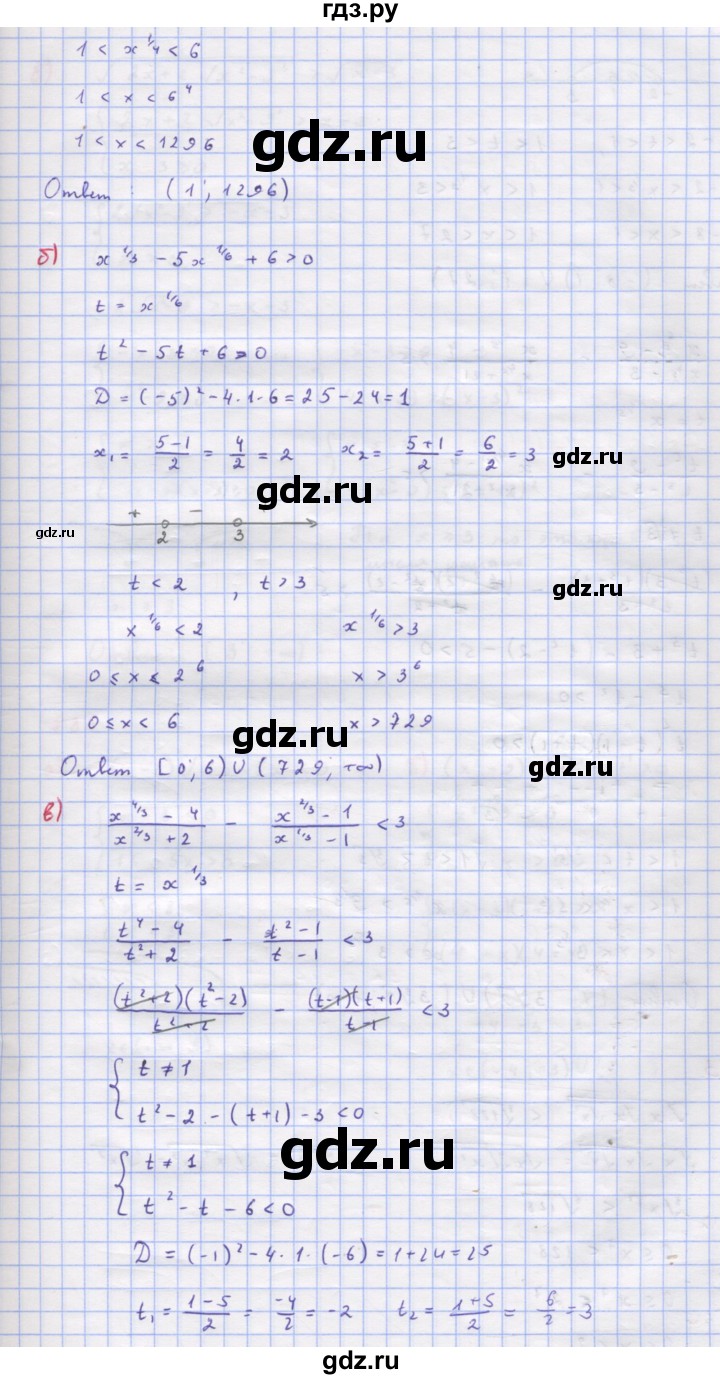 гдз.ру
1 < x^1/4 < 6
1 < x < 6^4
1 < x < 1296
gdz.ru
Ответ : (1 ; 1296)
б) x^1/3 - 5x^1/6 + 6 > 0
t = x^1/6
t^2 - 5t + 6 > 0
D = (-5)^2 - 4·1·6 = 25 - 24 = 1
x₁ = (5-1)/2 = 4/2 = 2 x₂ = (5+1)/2 = 6/2 = 3
gdz.ru
gdz.ru
gdz.ru
+ -
2 3
t < 2 , t > 3
gdz.ru
x^1/6 < 2 x^1/6 > 3
0 ≤ x < 2^6 x > 3^6
0 ≤ x < 6 x > 729
gdz.ru
Ответ [0; 6) ∪ (729; +∞)
gdz.ru
в) (x^4/3 - 4)/(x^2/3 + 2) - (x^2/3 - 1)/(x^1/3 - 1) < 3
t = x^1/3
(t^4 - 4)/(t^2 + 2) - (t^2 - 1)/(t - 1) < 3
gdz.ru
((t^2+2)(t^2-2))/(t^2+2) - ((t-1)(t+1))/(t-1) < 3
{ t ≠ 1
t^2 - 2 - (t+1) - 3 < 0
gdz.ru
{ t ≠ 1
t^2 - t - 6 < 0
D = (-1)^2 - 4·1·(-6) = 1 + 24 = 25
t₁ = (1-5)/2 = -4/2 = -2 t₂ = (1+5)/2 = 6/2 = 3
gdz.ru